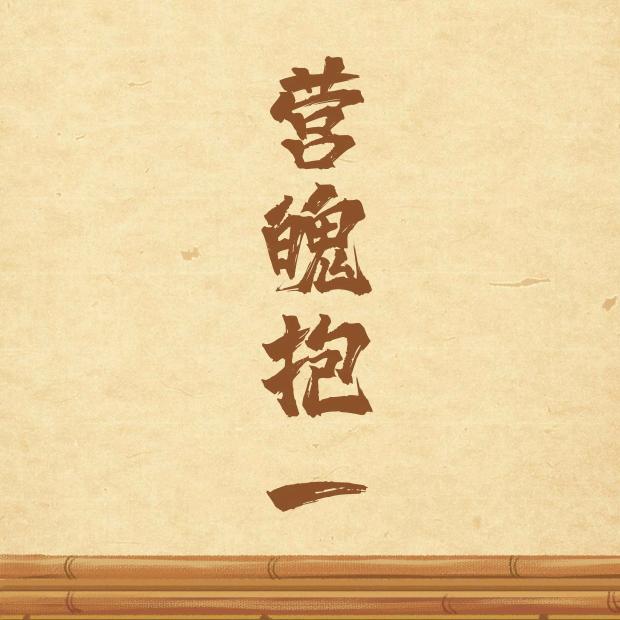 营魄抱一